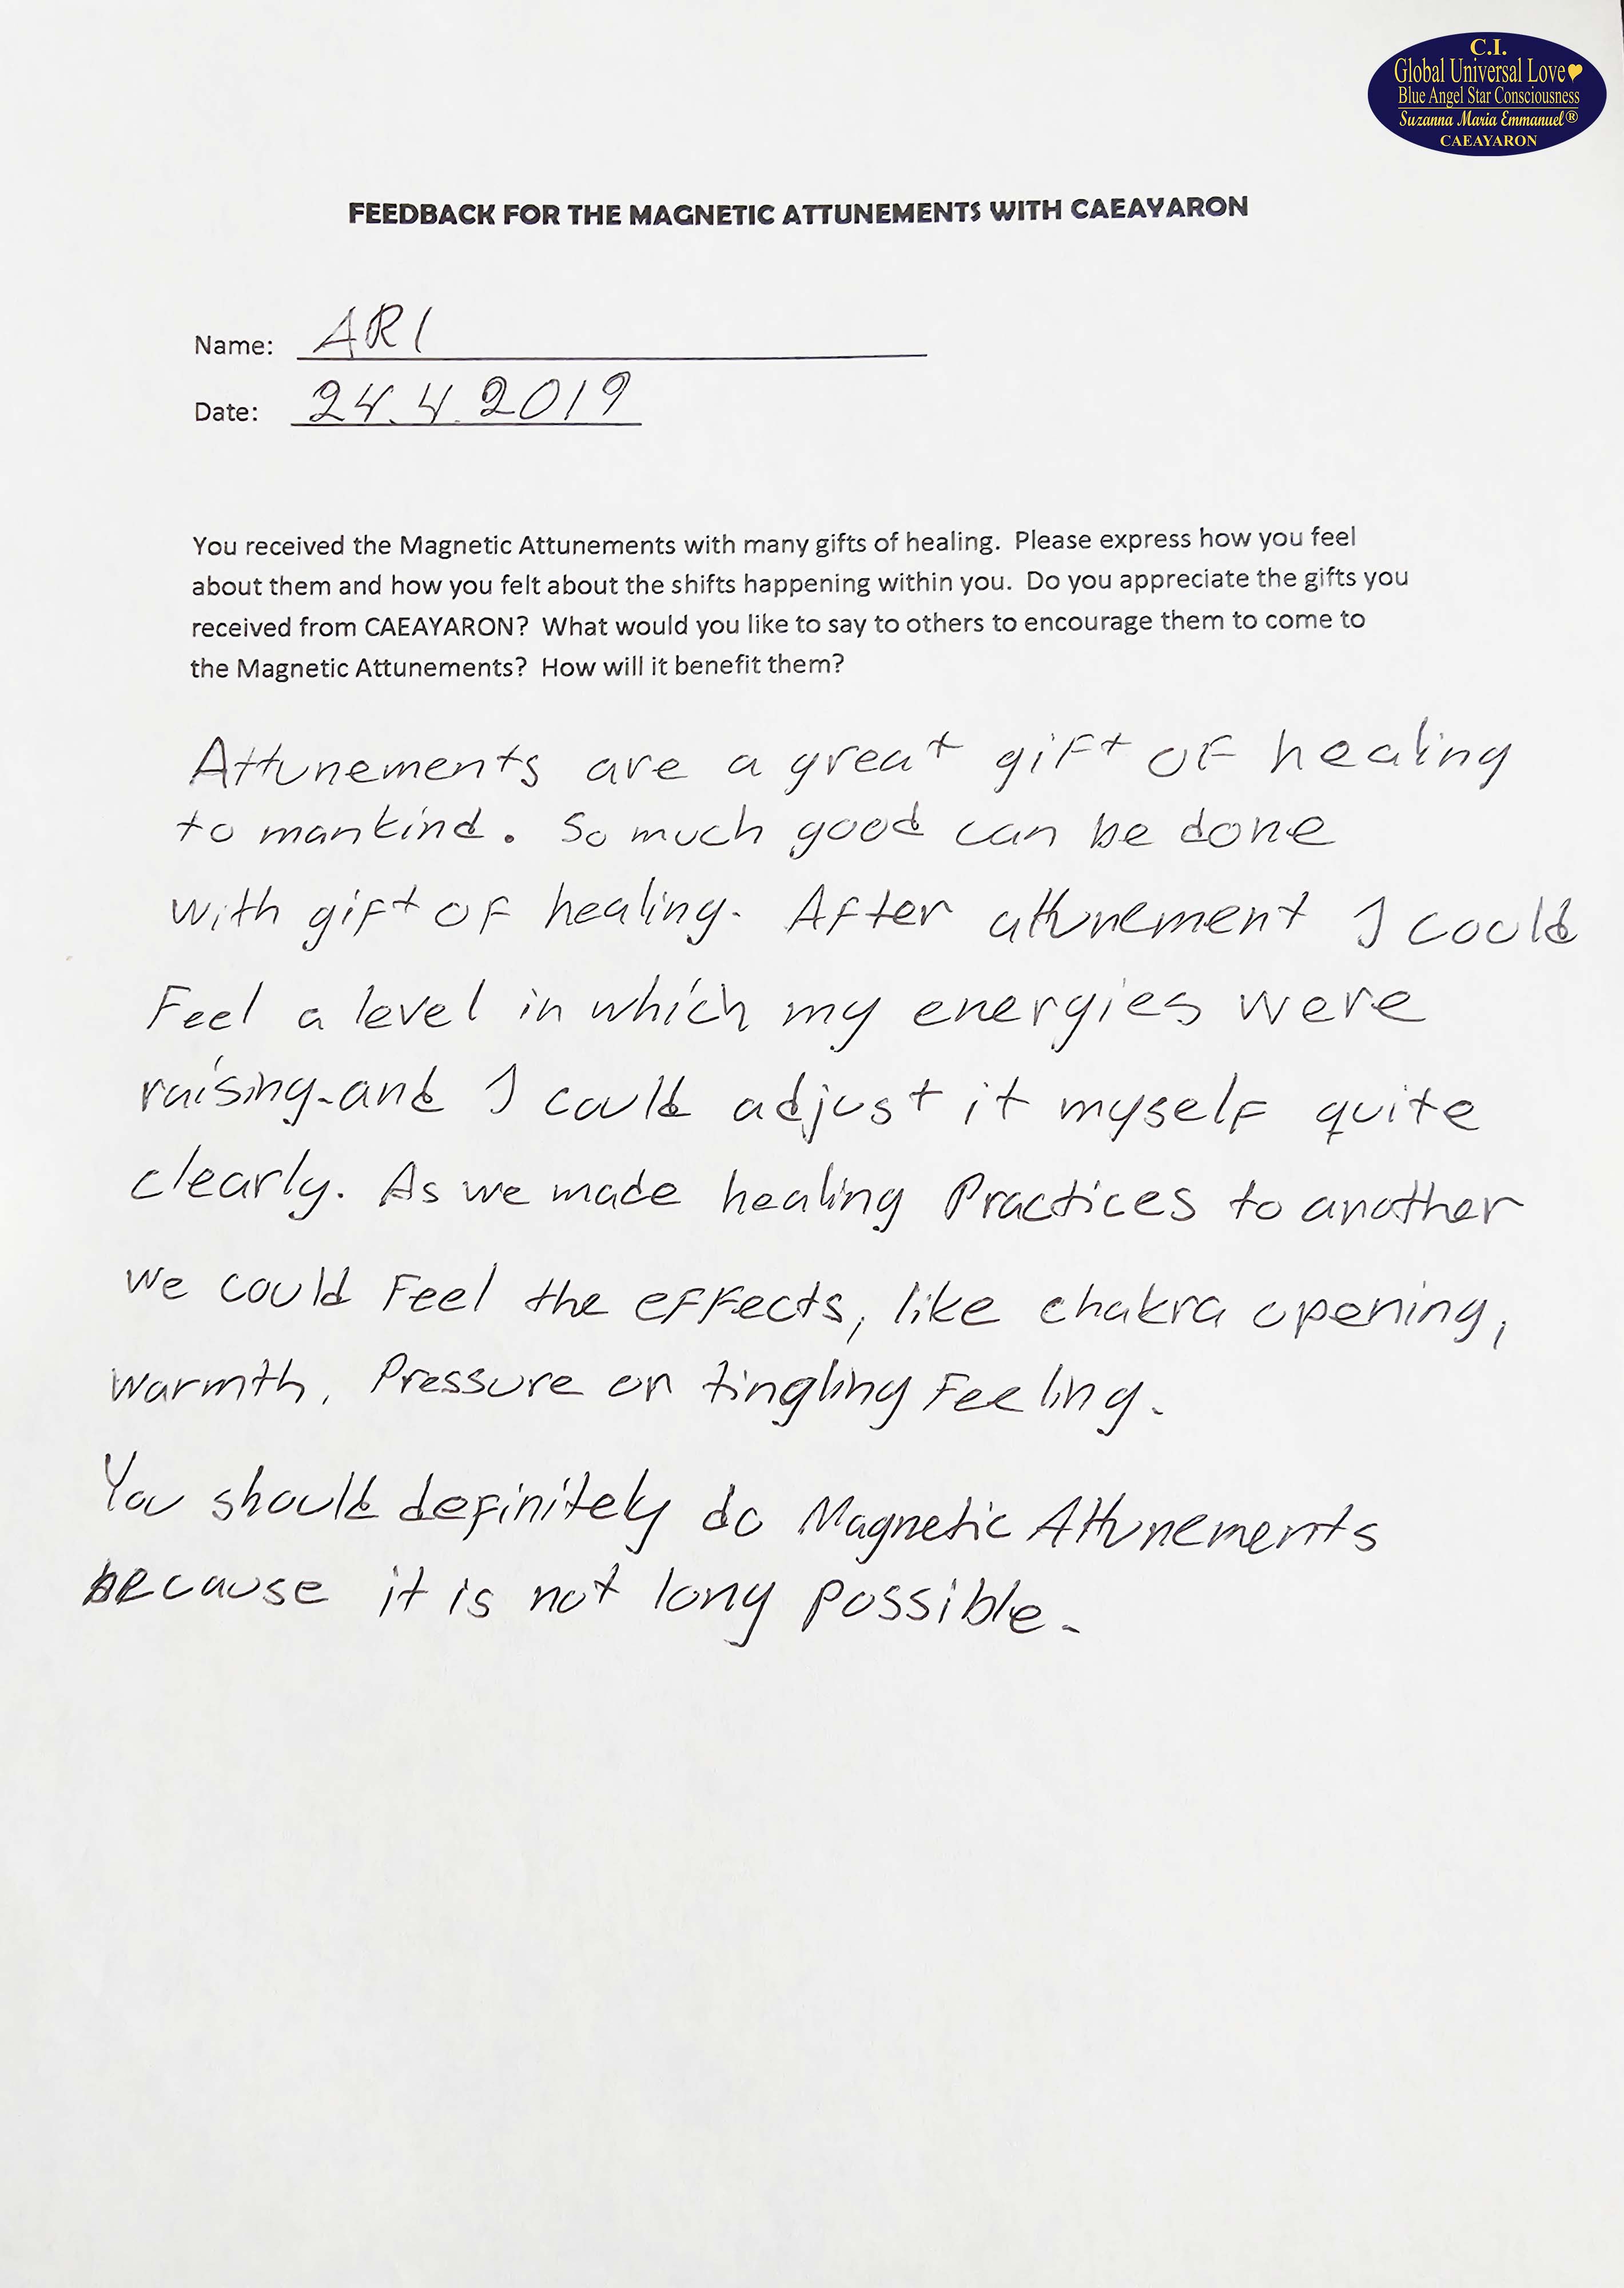 C.I.
Global Universal Love
Blue Angel Star Consciousness
Suzanna Maria Emmanuel®
CAEAYARON
FEEDBACK FOR THE MAGNETIC ATTUNEMENTS WITH CAEAYARON
Name: ARI
Date: 24.4.2019
You received the Magnetic Attunements with many gifts of healing. Please express how you feel
about them and how you felt about the shifts happening within you. Do you appreciate the gifts you
received from CAEAYARON? What would you like to say to others to encourage them to come to
the Magnetic Attunements? How will it benefit them?
Attunements are a great gift of healing
to mankind. So much good can be done
with gift of healing. After attunement I could
Feel a level in which my energies were
raising and I could adjust it myself quite
clearly. As we made healing Practices to another
we could Feel the effects, like chakra opening,
warmth, Pressure or tingling Feeling.
You should definitely do Magnetic Attunements
because it is not long possible.